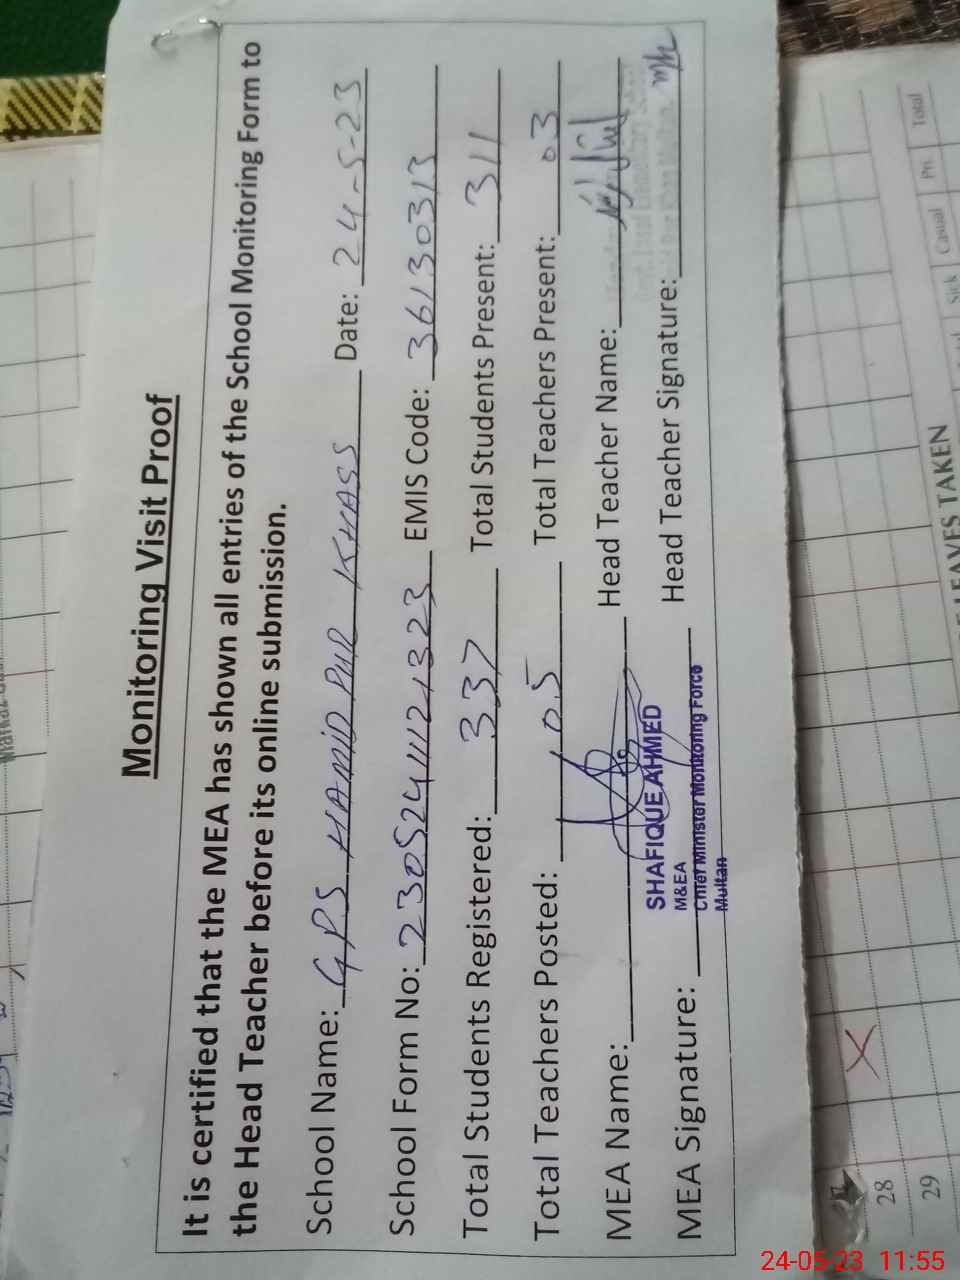 Monitoring Visit Proof
It is certified that the MEA has shown all entries of the School Monitoring Form to
the Head Teacher before its online submission.
School Name: GPS HAMID PUR KHASS Date: 24-5-23
School Form No: 2305241121323 EMIS Code: 36130313
Total Students Registered: 337 Total Students Present: 311
Total Teachers Posted: 05 Total Teachers Present: 03
MEA Name: Head Teacher Name:
MEA Signature: Head Teacher Signature:
SHAFIQUE AHMED
M&EA
Chief Minister Monitoring Force
Multan
Sick Casual Pri. Total
LEAVES TAKEN
28
29
24-05-23 11:55